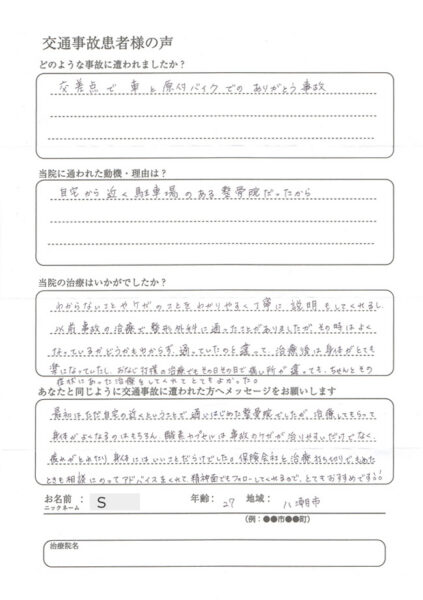 交通事故患者様の声
どのような事故に遭われましたか？
交差点で 車と原付バイクでの ありがとう事故
当院に通われた動機・理由は？
自宅から近く駐車場のある整骨院だったから
当院の治療はいかがでしたか？
わからないことやケガのことをわかりやすく丁寧に説明もしてくれるし
以前事故の治療で整形外科に通ったことがありましたが、その時はよく
なっているかどうかもわからず 通っていたのと違って、治療後は身体がとても
楽になっていたし、おなじ打撲の治療でもその日その日で痛し所が違っても、ちゃんとその
症状にあった治療をしてくれてとてもよかった。
あなたと同じように交通事故に遭われた方へメッセージをお願いします
最初はただ自宅の近くということで 通いはじめた整骨院でしたが、治療してもらって
身体がよくなるのはもちろん 酸素カプセルは事故のケガが治りやすいだけでなく、
疲れがとれたり 身体にはいいことだらけでした。保険会社と治療打ち切りでもめた
ときも相談にのってアドバイスをくれて、精神面でもフォローしてくれるので、とてもおすすめです!!
お名前： S 年齢： 27 地域： 八潮市
ニックネーム
（例：●●市●●町）
治療院名